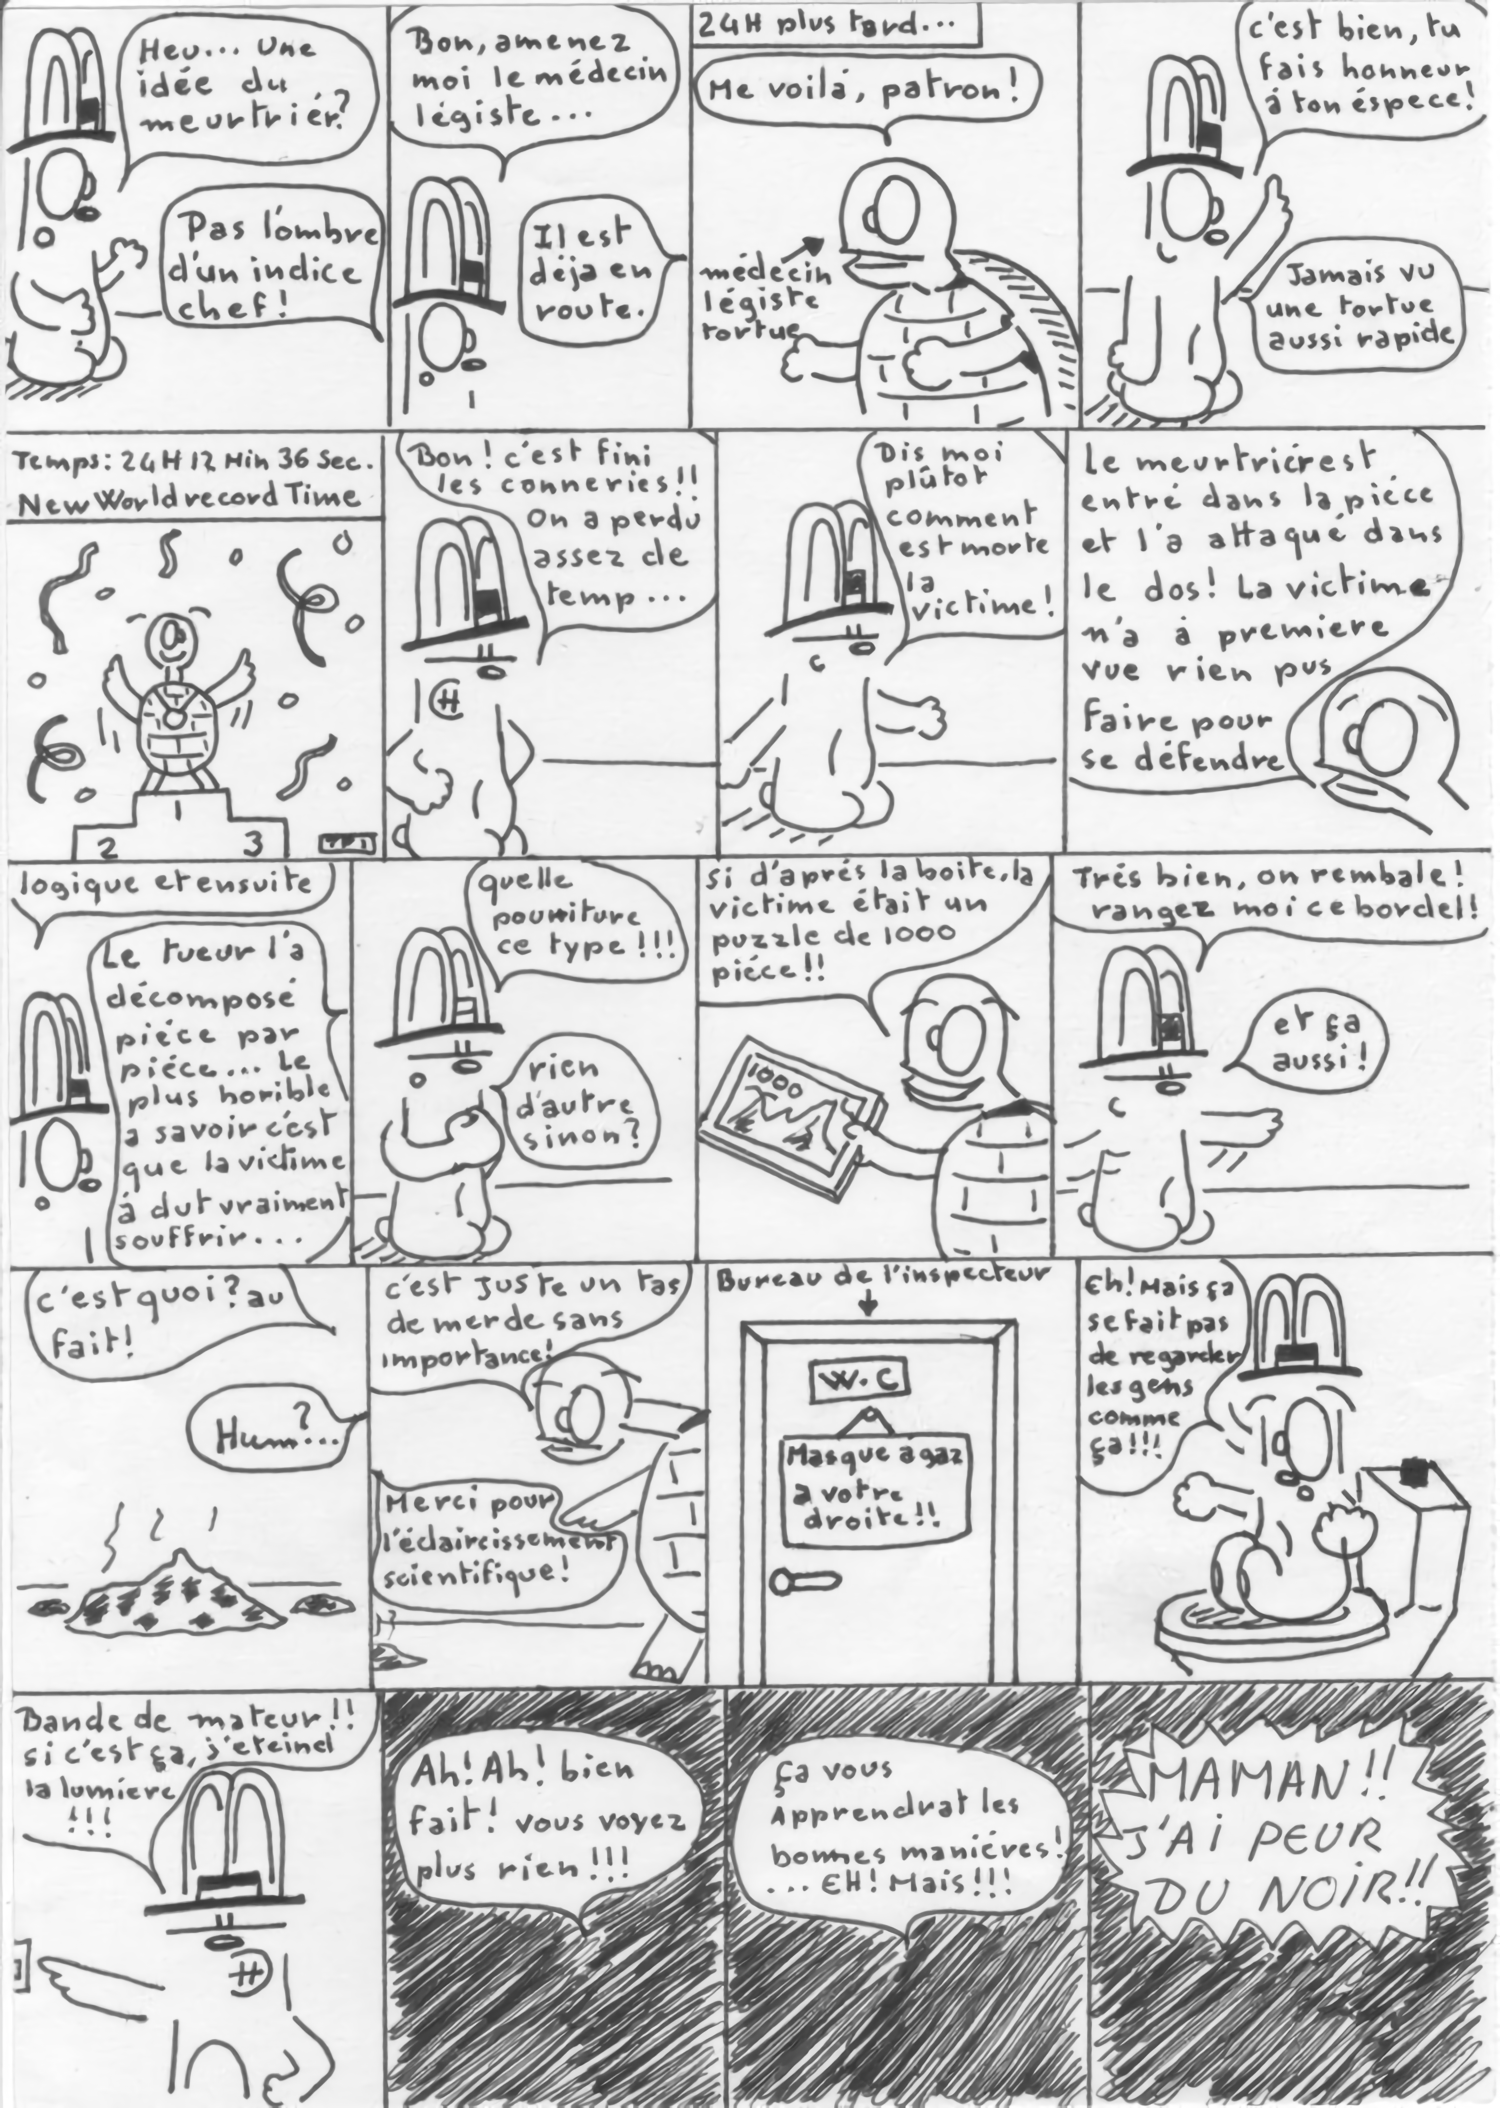 Heu... Une
idée du
meurtriér?
Pas l'ombre
d'un indice
chef!
Bon, amenez
moi le médecin
légiste...
Il est
déja en
route.
24H plus tard...
Me voilá, patron!
médecin
légiste
tortue
c'est bien, tu
fais honneur
á ton éspece!
Jamais vu
une tortue
aussi rapide
Temps: 24H 12 Min 36 Sec.
New World record Time
1
2
3
Bon! c'est fini
les conneries!!
On a perdu
assez de
temp...
Dis moi
plûtot
comment
est morte
la
victime!
Le meurtriér est
entré dans la piéce
et l'a attaqué dans
le dos! La victime
n'a à premiere
vue rien pus
faire pour
se défendre
logique et ensuite
Le tueur l'a
décomposé
piéce par
piéce... Le
plus horrible
a savoir c'est
que la victime
á dut vraiment
souffrir...
quelle
pourriture
ce type!!!
rien
d'autre
sinon?
si d'aprés la boite, la
victime était un
puzzle de 1000
piéce!!
1000
Trés bien, on rembale!
rangez moi ce bordel!
et ça
aussi!
c'est quoi? au
fait!
Hum?...
c'est juste un tas
de merde sans
importance!
Merci pour
l'éclaircissement
scientifique!
Bureau de l'inspecteur
W.C
Masque á gaz
a votre
droite!!
Eh! Mais ça
se fait pas
de regarder
les gens
comme
ça!!!
Bande de mateur!!
si c'est ça, j'eteind
la lumiere
!!!
Ah! Ah! bien
fait! vous voyez
plus rien!!!
ça vous
Apprendrat les
bonnes maniéres!
... EH! Mais!!!
MAMAN!!
J'AI PEUR
DU NOIR!!